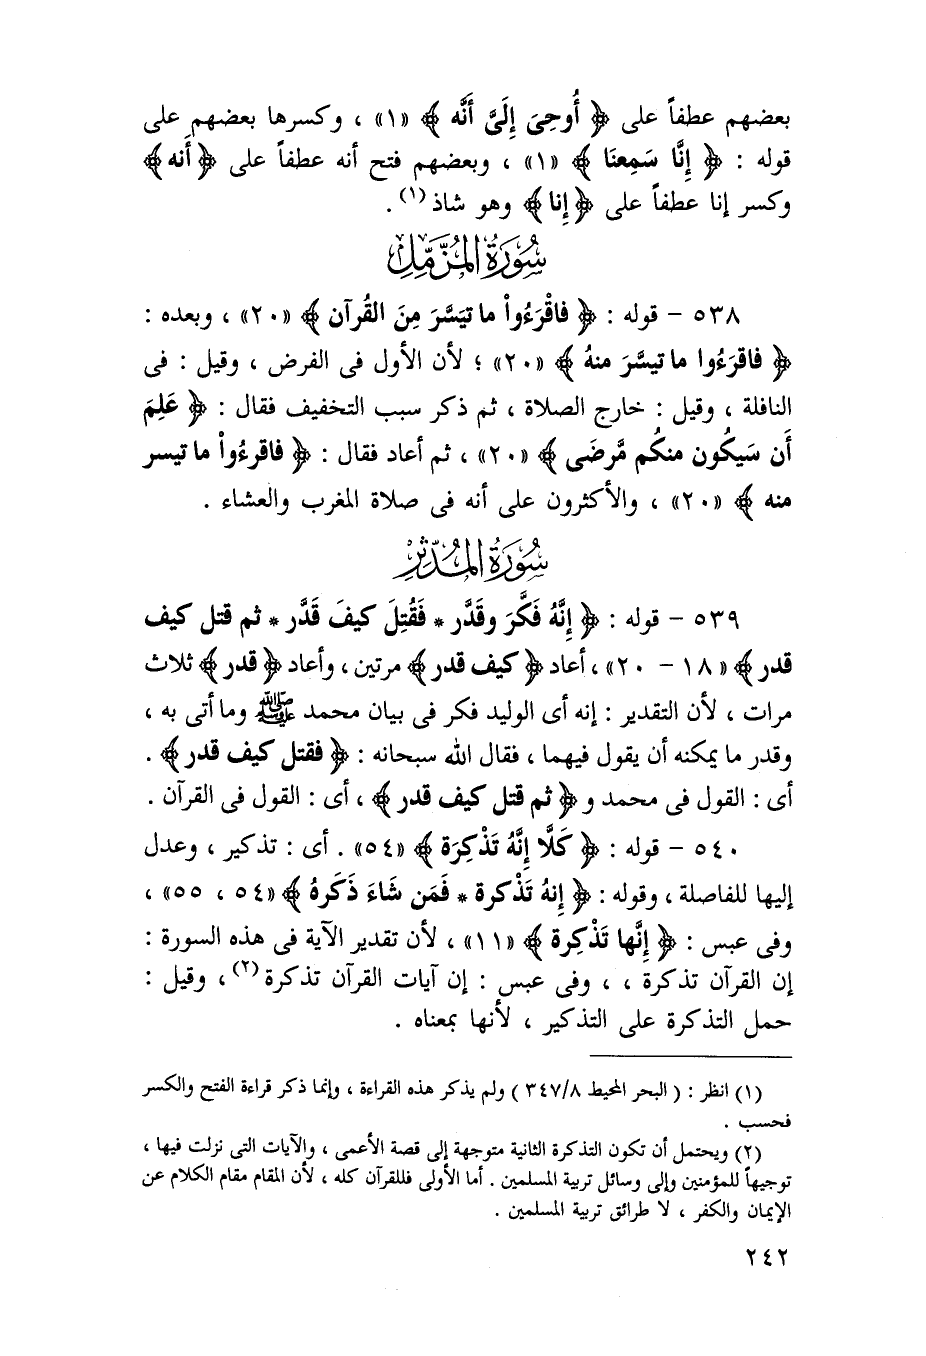 بعضهم عطفاً على ﴿ أُوحِىَ إِلَىَّ أَنَّه ﴾ «١» ، وكسرها بعضهم على
قوله : ﴿ إِنَّا سَمِعنَا ﴾ «١» ، وبعضهم فتح أنه عطفاً على ﴿أَنه﴾
وكسر إنا عطفاً على ﴿إنا﴾ وهو شاذ(١) .
سُورَةُ المُزَّمِّل
٥٣٨ - قوله : ﴿ فاقْرَءُواْ ما تيَسَّرَ مِنَ القُرآن ﴾ «٢٠» ، وبعده :
﴿ فاقرَءُوا ما تيسَّرَ منهُ ﴾ «٢٠» ؛ لأن الأول فى الفرض ، وقيل : فى
النافلة ، وقيل : خارج الصلاة ، ثم ذكر سبب التخفيف فقال : ﴿ عَلِمَ
أَن سَيَكُون منكُم مَّرضَى ﴾ «٢٠» ، ثم أعاد فقال : ﴿ فاقرءُواْ ما تيسر
منه ﴾ «٢٠» ، والأكثرون على أنه فى صلاة المغرب والعشاء .
سُورَةُ المُدَّثِّر
٥٣٩ - قوله : ﴿ إِنَّهُ فَكَّرَ وقَدَّر * فَقُتِلَ كيفَ قَدَّر * ثم قتل كيف
قدر ﴾ «١٨ - ٢٠» ، أعاد ﴿ كيف قدر ﴾ مرتين ، وأعاد ﴿ قدر ﴾ ثلاث
مرات ، لأن التقدير : إنه أى الوليد فكر فى بيان محمد ﷺ وما أتى به ،
وقدر ما يمكنه أن يقول فيهما ، فقال الله سبحانه : ﴿ فقتل كيف قدر ﴾ .
أى : القول فى محمد و ﴿ ثم قتل كيف قدر ﴾ ، أى : القول فى القرآن .
٥٤٠ - قوله : ﴿ كَلَّا إِنَّهُ تَذْكِرَة ﴾ «٥٤» . أى : تذكير ، وعدل
إليها للفاصلة ، وقوله : ﴿ إِنهُ تَذْكرة * فَمَن شَاءَ ذَكَرهُ ﴾ «٥٤ ، ٥٥» ،
وفى عبس : ﴿ إِنَّها تَذْكِرة ﴾ «١١» ، لأن تقدير الآية فى هذه السورة :
إن القرآن تذكرة ، ، وفى عبس : إن آيات القرآن تذكرة(٢) ، وقيل :
حمل التذكرة على التذكير ، لأنها بمعناه .
(١) انظر : ( البحر المحيط ٣٤٧/٨ ) ولم يذكر هذه القراءة ، وإنما ذكر قراءة الفتح والكسر
فحسب .
(٢) ويحتمل أن تكون التذكرة الثانية متوجهة إلى قصة الأعمى ، والآيات التى نزلت فيها ،
توجيهاً للمؤمنين وإلى وسائل تربية المسلمين . أما الأولى فللقرآن كله ، لأن المقام مقام الكلام عن
الإيمان والكفر ، لا طرائق تربية المسلمين .
٢٤٢